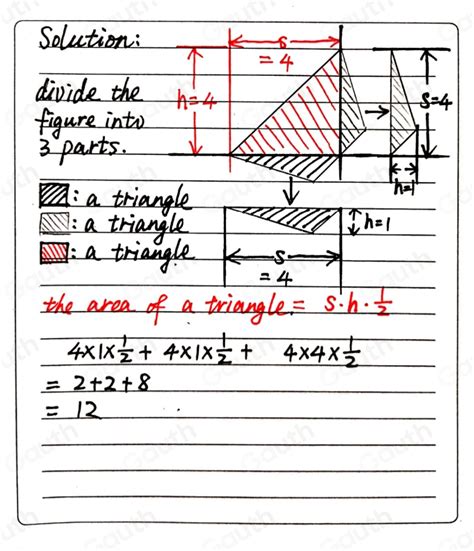 Solution:
s
= 4
divide the
figure into
3 parts.
h=4
s=4
h=1
: a triangle
: a triangle
: a triangle
h=1
s
= 4
the area of a triangle = s·h·½
4×1×½ + 4×1×½ + 4×4×½
= 2+2+8
= 12
Gauth